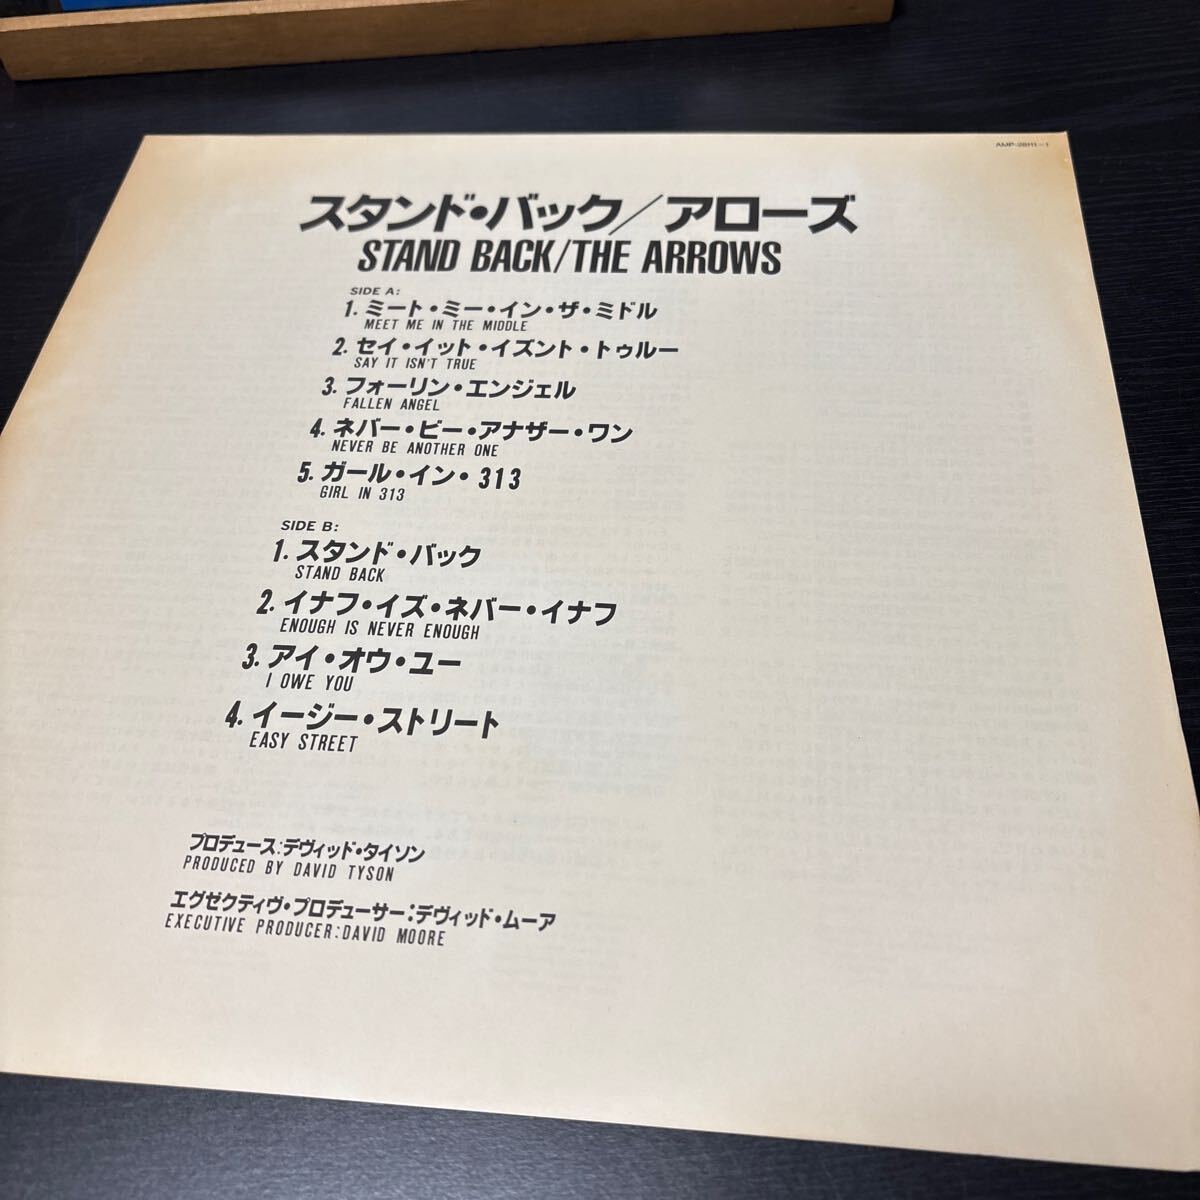 AMP-28111-1
スタンド・バック/アローズ
STAND BACK/THE ARROWS
SIDE A:
1. ミート・ミー・イン・ザ・ミドル
MEET ME IN THE MIDDLE
2. セイ・イット・イズント・トゥルー
SAY IT ISN'T TRUE
3. フォーリン・エンジェル
FALLEN ANGEL
4. ネバー・ビー・アナザー・ワン
NEVER BE ANOTHER ONE
5. ガール・イン・313
GIRL IN 313
SIDE B:
1. スタンド・バック
STAND BACK
2. イナフ・イズ・ネバー・イナフ
ENOUGH IS NEVER ENOUGH
3. アイ・オウ・ユー
I OWE YOU
4. イージー・ストリート
EASY STREET
プロデュース:デヴィッド・タイソン
PRODUCED BY DAVID TYSON
エグゼクティヴ・プロデューサー:デヴィッド・ムーア
EXECUTIVE PRODUCER:DAVID MOORE